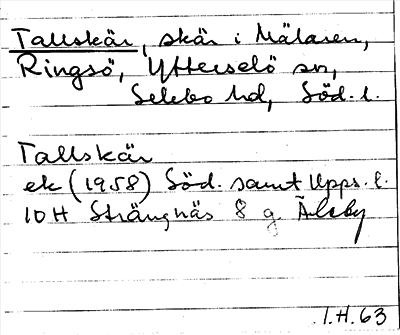 Tallskär, skär i Mälaren,
Ringsö, Ytterselö sn,
Selebo hd, Söd. l.
Tallskär
ek (1958) Söd. samt Upps. l.
10 H Strängnäs 8 g Älsby
I.H. 63